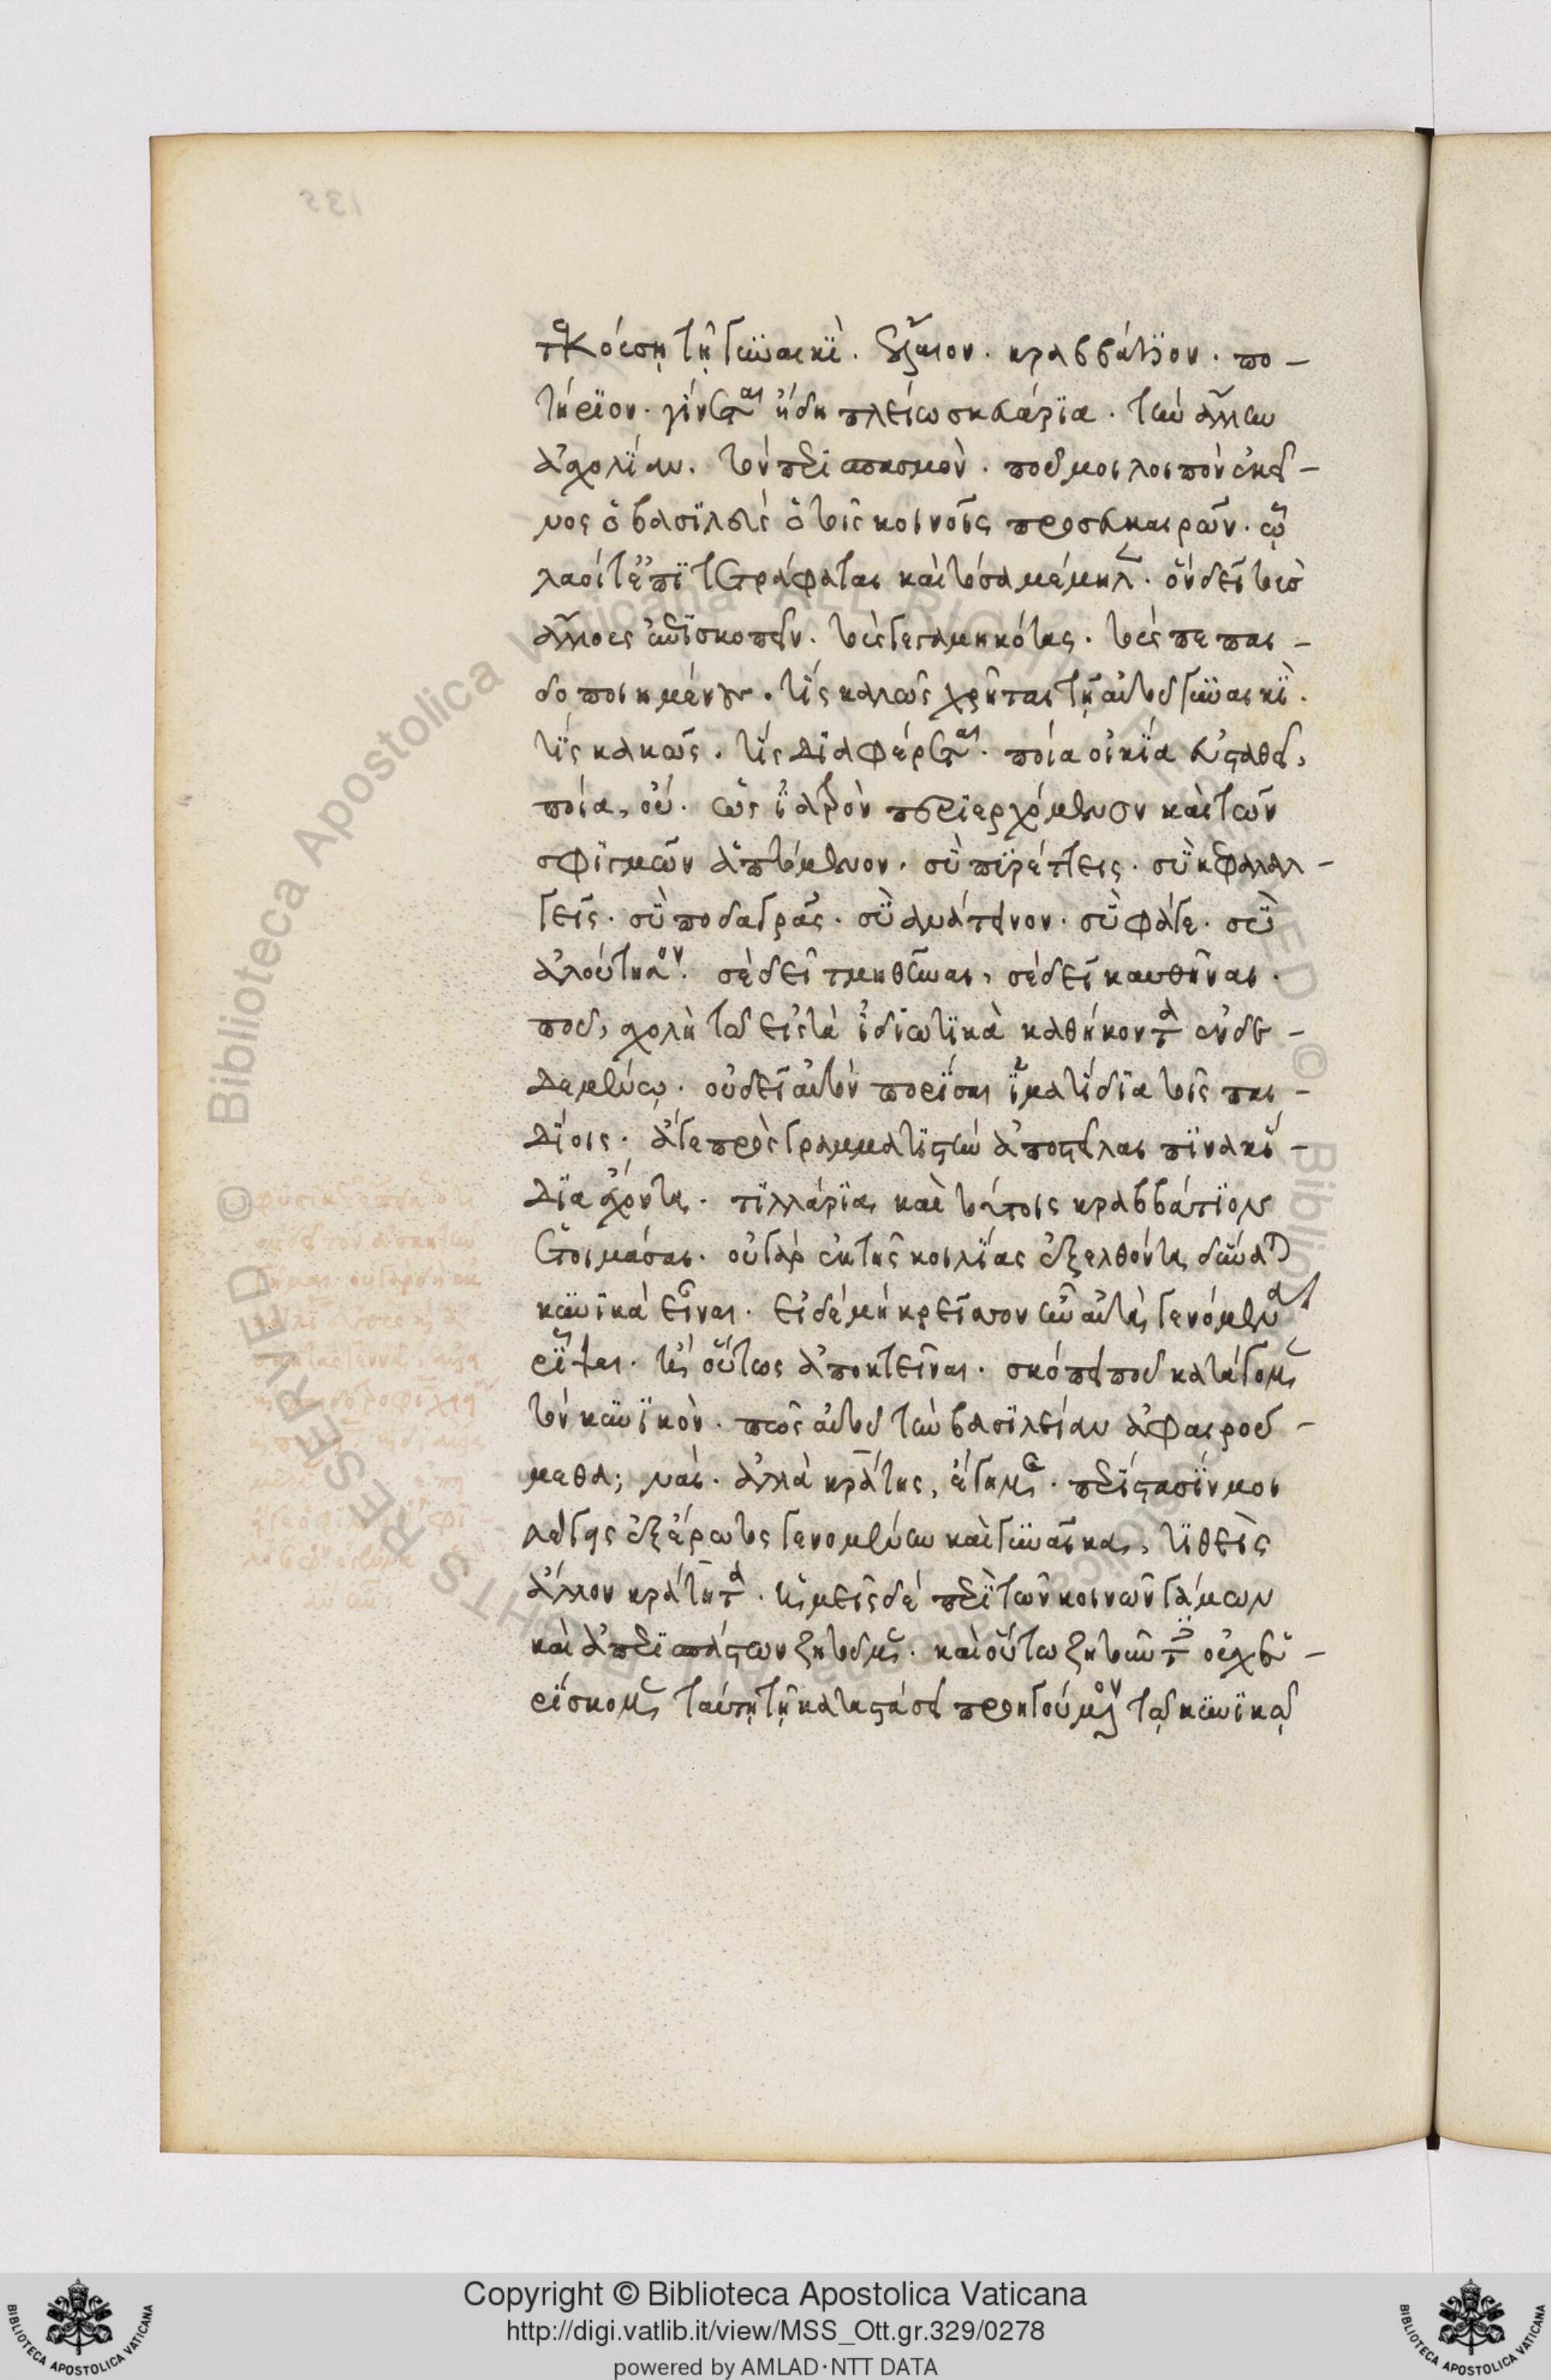 τεκούσῃ τῇ γυναικὶ. ἔλαιον. κραββάτιον. πο-
τήριον. γίνεται ἤδη πλείω σκευάρια. τὴν ἄλλην
ἀσχολίαν. τὸν περισπασμὸν. ποῦ μοι λοιπὸν ἐκεῖ-
νος ὁ βασιλεὺς ὁ τοῖς κοινοῖς προσευκαιρῶν. ᾧ
λαοί τ' ἐπιτετράφαται καὶ τόσα μέμηλε. ὃν δεῖ τοὺς
ἄλλους ἐπισκοπεῖν. τοὺς γεγαμηκότας. τοὺς πεπαι-
δοποιημένους. τίς καλῶς χρῆται τῇ αὐτοῦ γυναικὶ.
τίς κακῶς. τίς διαφέρεται. ποία οἰκία εὐσταθεῖ,
ποία, οὐ. ὡς ἰατρὸν περιερχόμενον καὶ τῶν
σφυγμῶν ἁπτόμενον. σὺ πυρέττεις. σὺ κεφαλαλ-
γεῖς. σὺ ποδαγρᾷς. σὺ ἀνάτεινον. σὺ φάγε. σὺ
ἀλούτησον. σὲ δεῖ τμηθῆναι, σὲ δεῖ καυθῆναι.
ποῦ, σχολὴ τῷ εἰς τὰ ἰδιωτικὰ καθήκοντα ἐνδε-
δεμένῳ. οὐ δεῖ αὐτὸν πορίσαι ἱματίδια τοῖς παι-
δίοις. ἄγε πρὸς γραμματιστὴν ἀποστεῖλαι πινακί-
δια ἔχοντα. τιλλάρια, καὶ τούτοις κραββάτιον
ἑτοιμάσαι. οὐ γὰρ ἐκ τῆς κοιλίας ἐξελθόντα δύναται
κυνικὰ εἶναι. εἰ δὲ μὴ κρεῖσσον ἦν αὐτὰ, γενόμενα
ῥῖψαι. ἢ οὕτως ἀποκτεῖναι. σκόπει ποῦ κατάγομεν
τὸν κυνικὸν. πῶς αὐτοῦ τὴν βασιλείαν ἀφαιρού-
μεθα; ναί. ἀλλὰ κράτης, ἔγημεν. περίστασίν μοι
λέγεις ἐξ ἔρωτος γενομένην καὶ γυναῖκα, τιθεὶς
ἄλλον κράτητα. ἡμεῖς δὲ περὶ τῶν κοινῶν γάμων
καὶ ἀπεριστάτων ζητοῦμεν. καὶ οὕτω ζητοῦντες οὐχ εὑ-
ρίσκομεν ταύτῃ τῇ καταστάσει προηγούμενον τῷ κυνικῷ